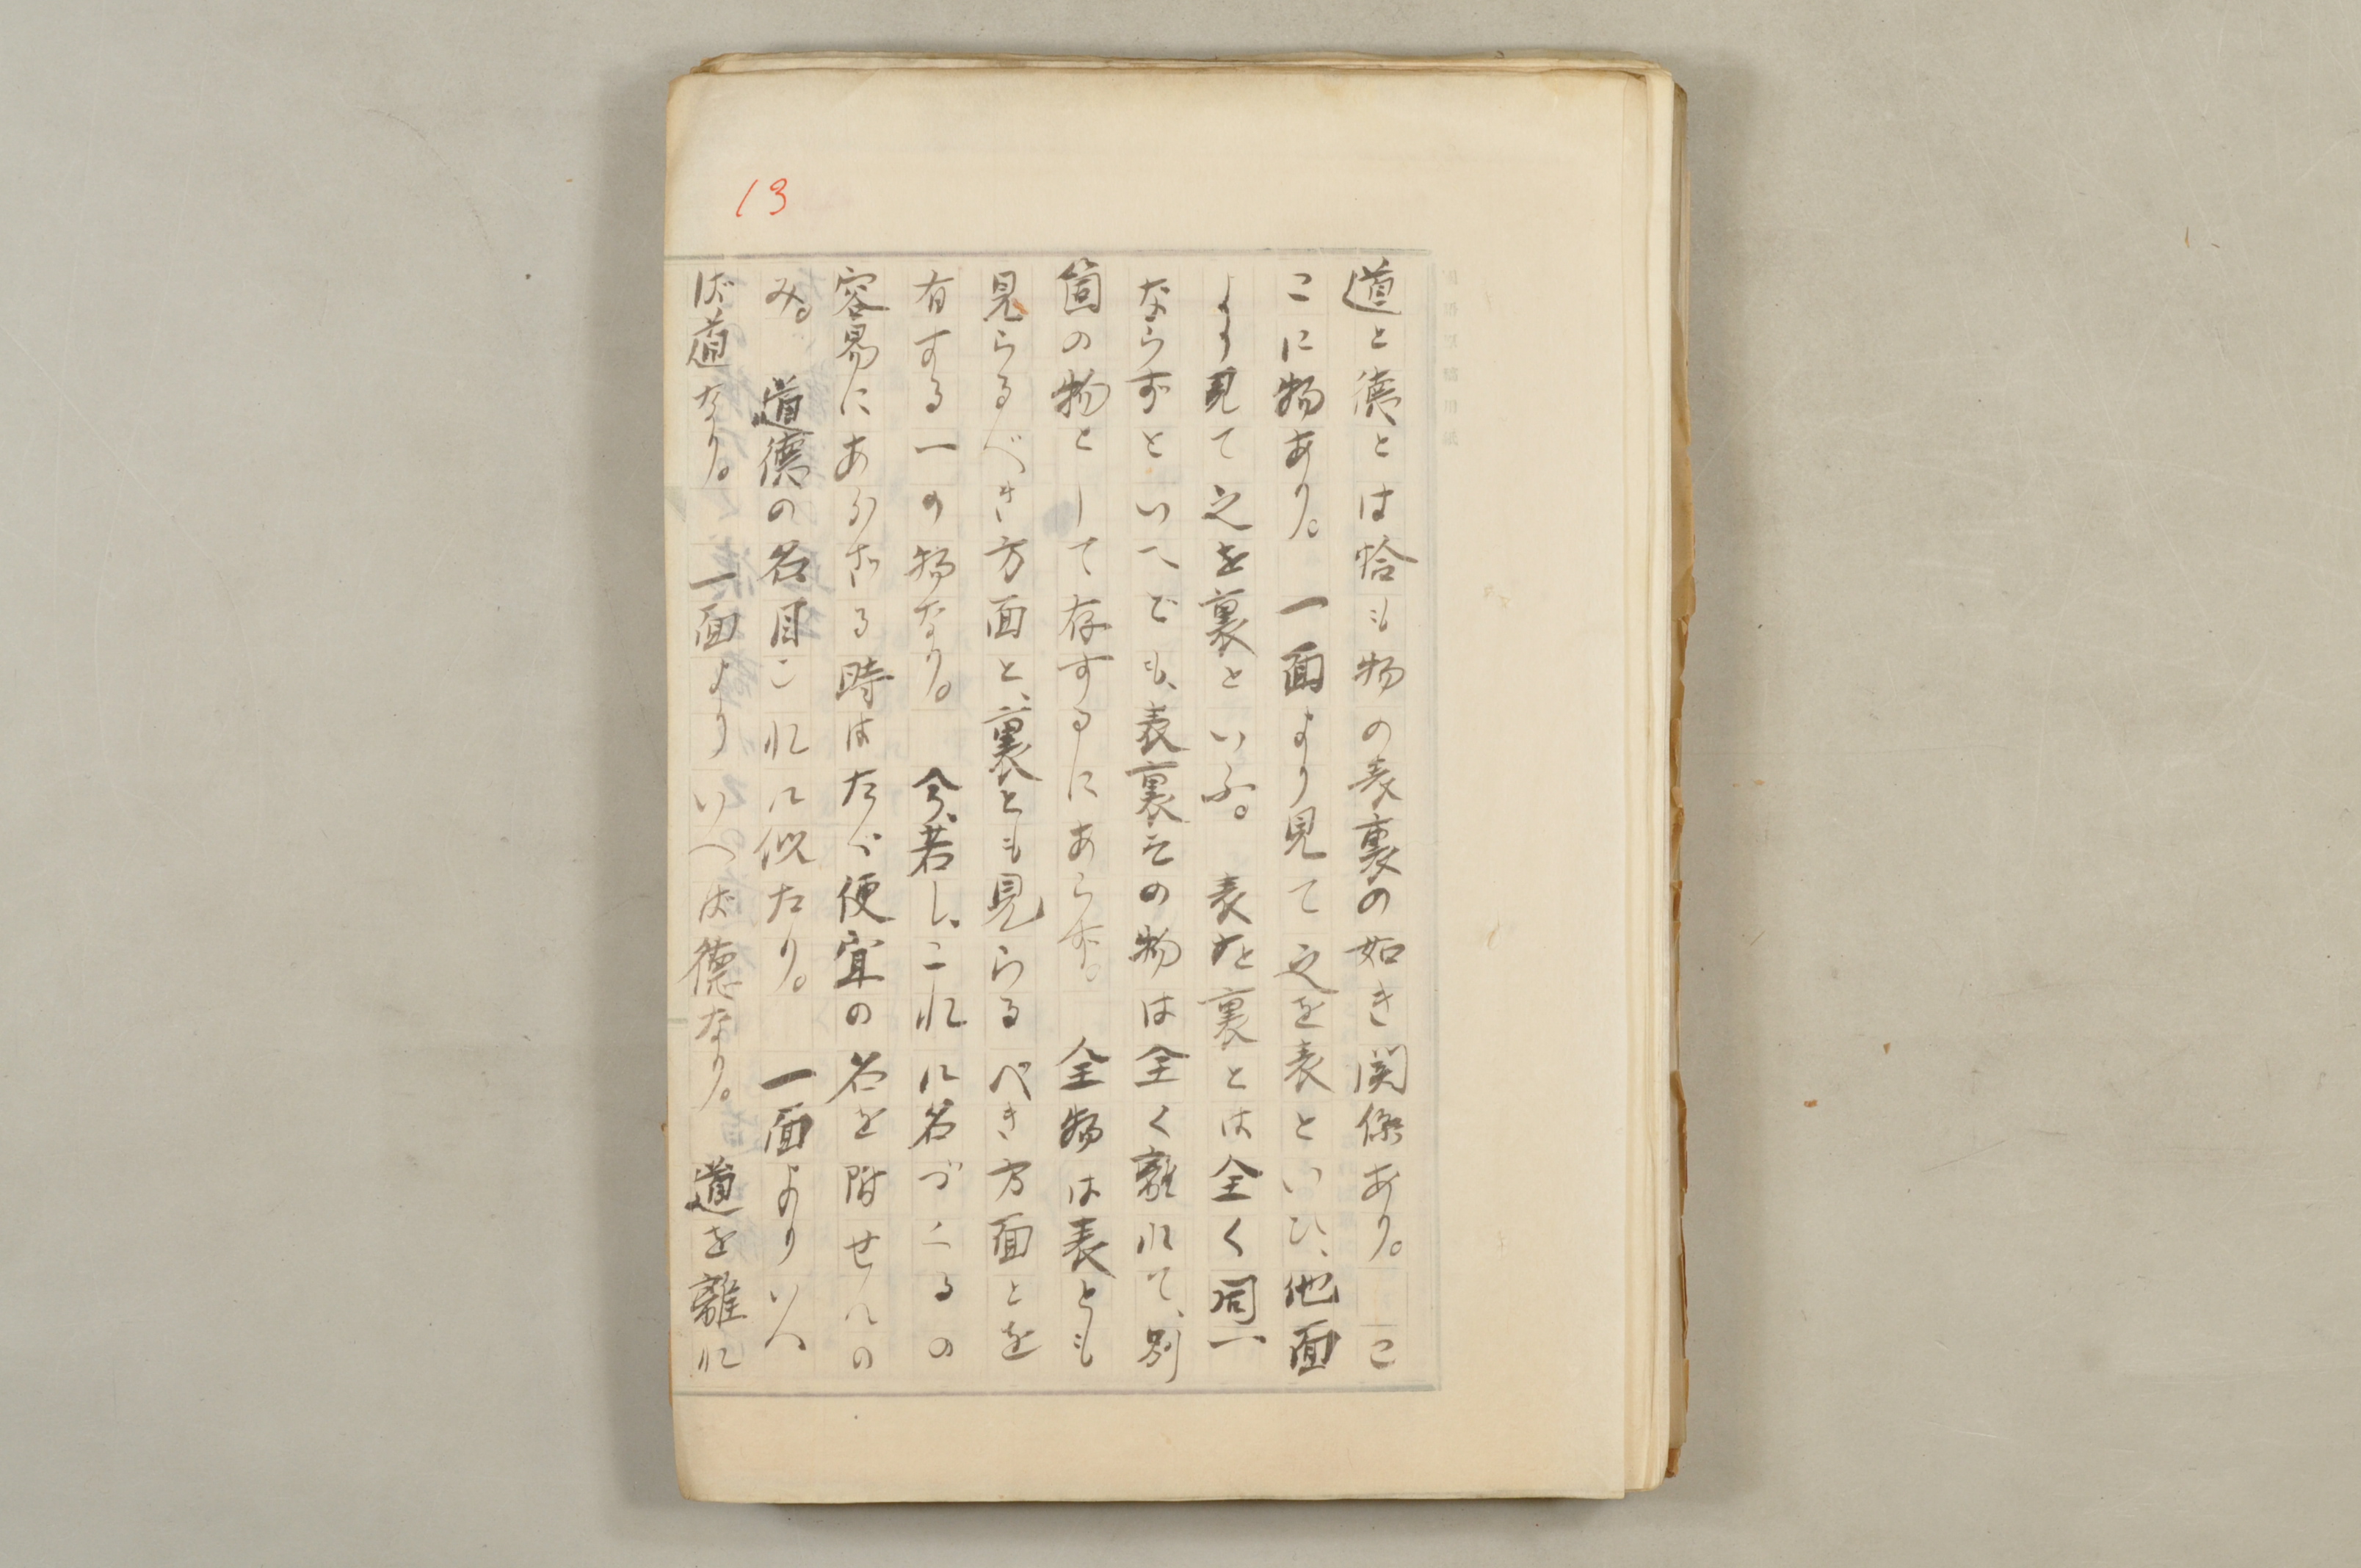 13
道と徳とは恰も物の表裏の如き関係あり。こ
こに物あり。一面より見て之を表といひ、他面
より見て之を裏といふ。表と裏とは全く同一
ならずといへども、表裏その物は全く離れて、別
箇の物として存するにあらず。全物は表とも
見らるべき方面と、裏とも見らるべき方面とを
有する一の物なり。今、若し、これに名づくるの
容易にあらざる時はたゞ便宜の名を附せんの
み。道徳の名目これに似たり。一面よりいへ
ば道なり。一面よりいへば徳なり。道を離れ